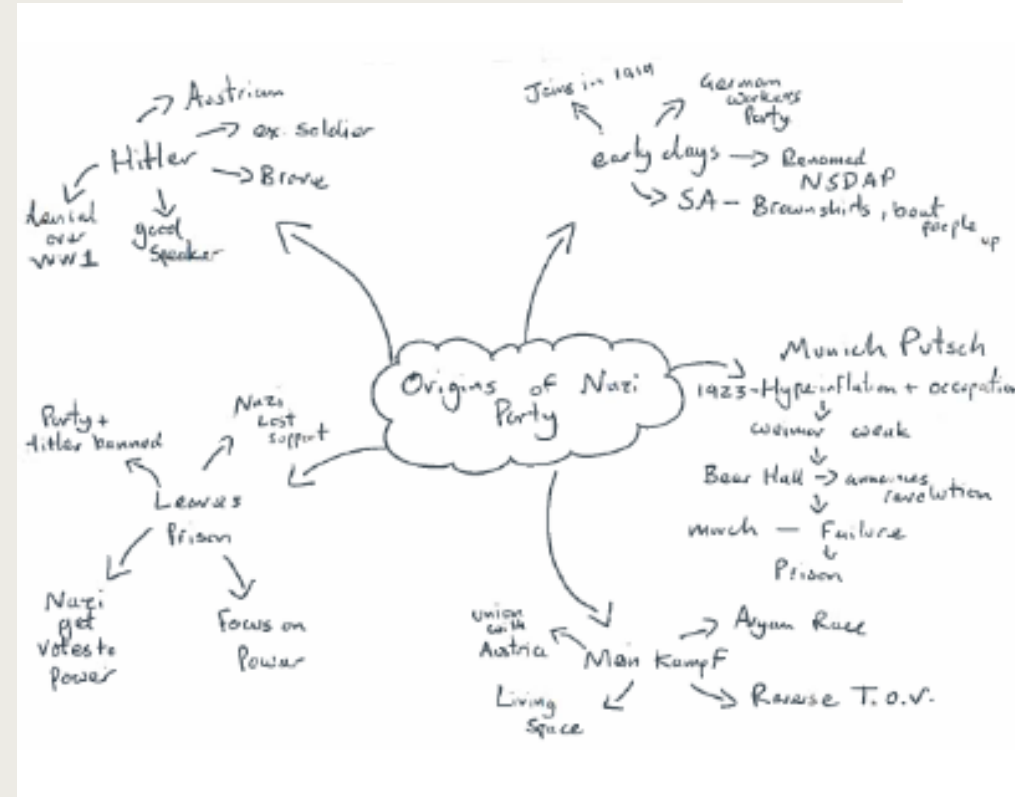 Origins of Nazi
Party
Hitler
Austrian
ex. soldier
Brave
good
Speaker
denial
over
WW1
early days
Joins in 1919
German
workers
Party
Renamed
NSDAP
SA - Brownshirts, beat
people
up
Munich Putsch
1923 - Hyperinflation + occupation
weimar weak
Beer Hall → announces
revolution
march — Failure
Prison
Mein Kampf
union
with
Austria
Aryan Race
Living
Space
Reverse T.O.V.
Leaves
Prison
Party +
Hitler banned
Nazi
Lost
support
Nazi
get
votes to
Power
Focus on
Power